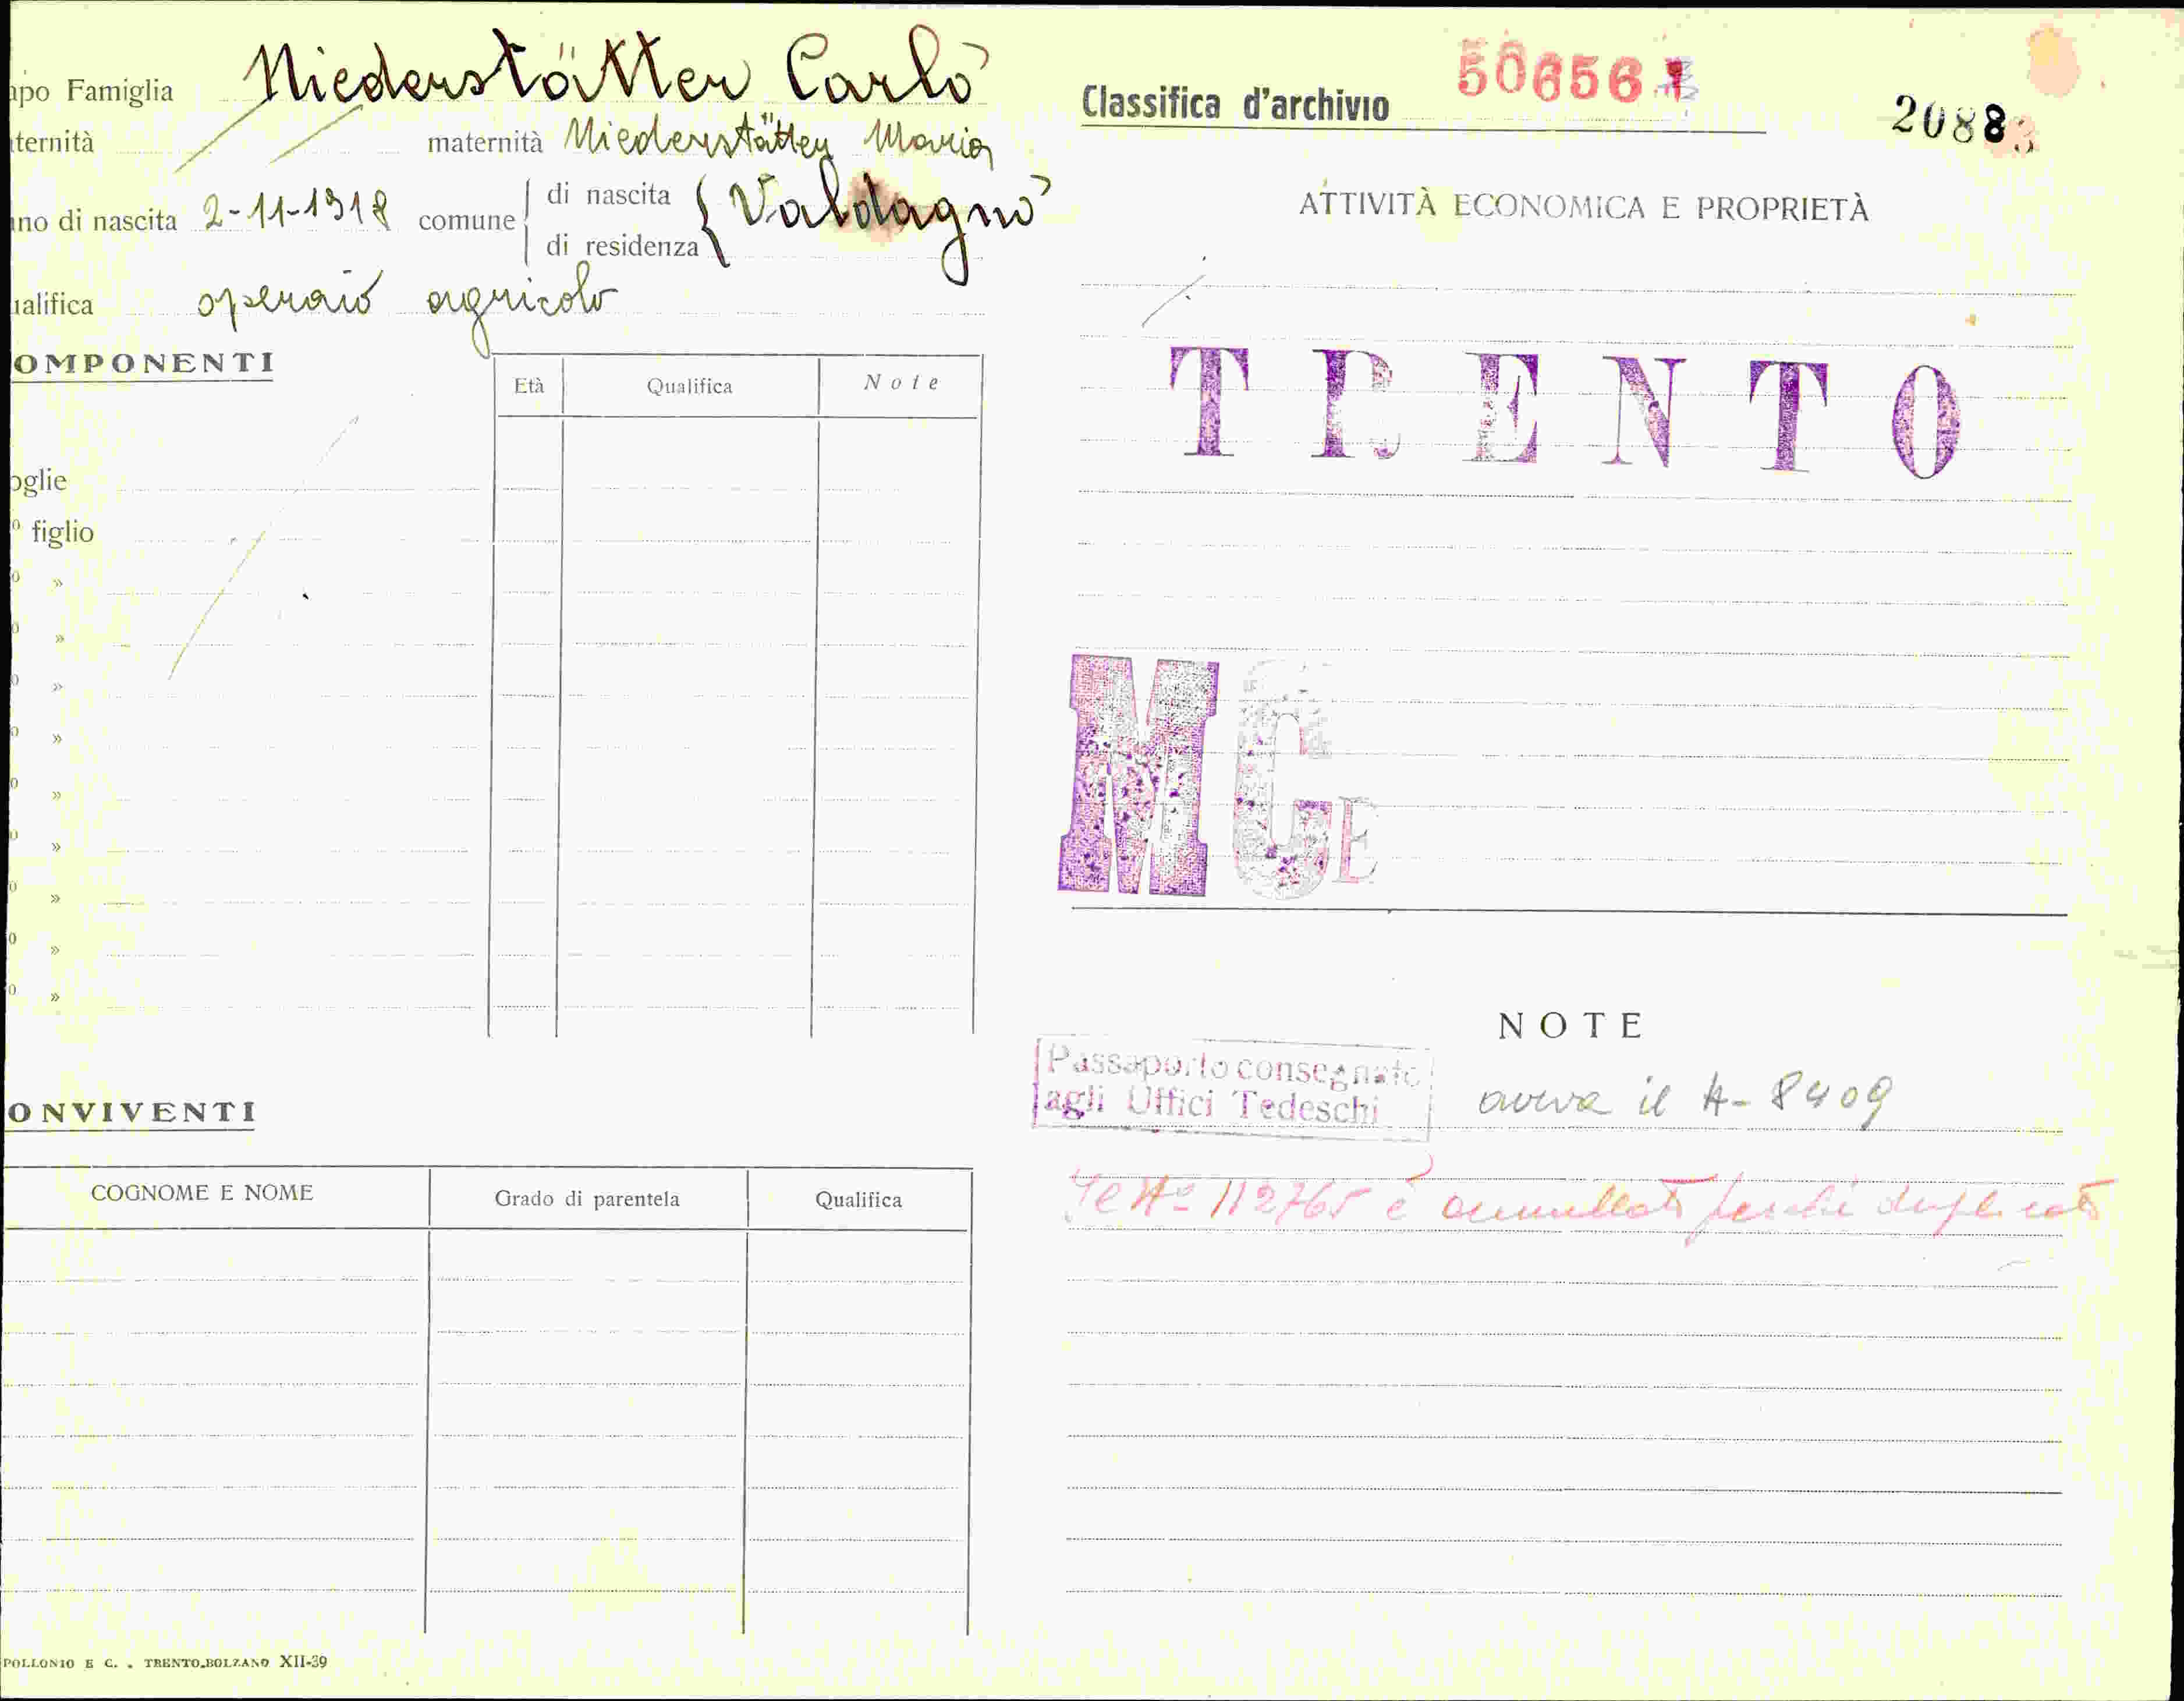 apo Famiglia Niederstätter Carlo
ternità maternità Niederstätter Maria
nno di nascita 2-11-1918 comune di nascita Valdagno
di residenza
ualifica operaio agricolo
OMPONENTI
Età Qualifica Note
oglie
o figlio
o »
o »
o »
o »
o »
o »
o »
o »
o »
ONVIVENTI
COGNOME E NOME Grado di parentela Qualifica
POLLONIO E C. - TRENTO-BOLZANO XII-39
Classifica d'archivio 50656
2088
ATTIVITÀ ECONOMICA E PROPRIETÀ
TRENTO
MCE
NOTE
Passaporto consegnato
agli Uffici Tedeschi
aveva il A- 8409
Il A- 112765 è annullato perché duplicato